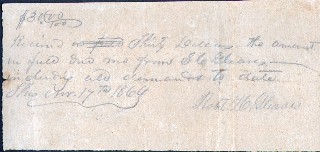 $30.00/100
Received Thirty Dollars the amount
in full due me from E C
including all demands to date
This Nov. 17th 1864